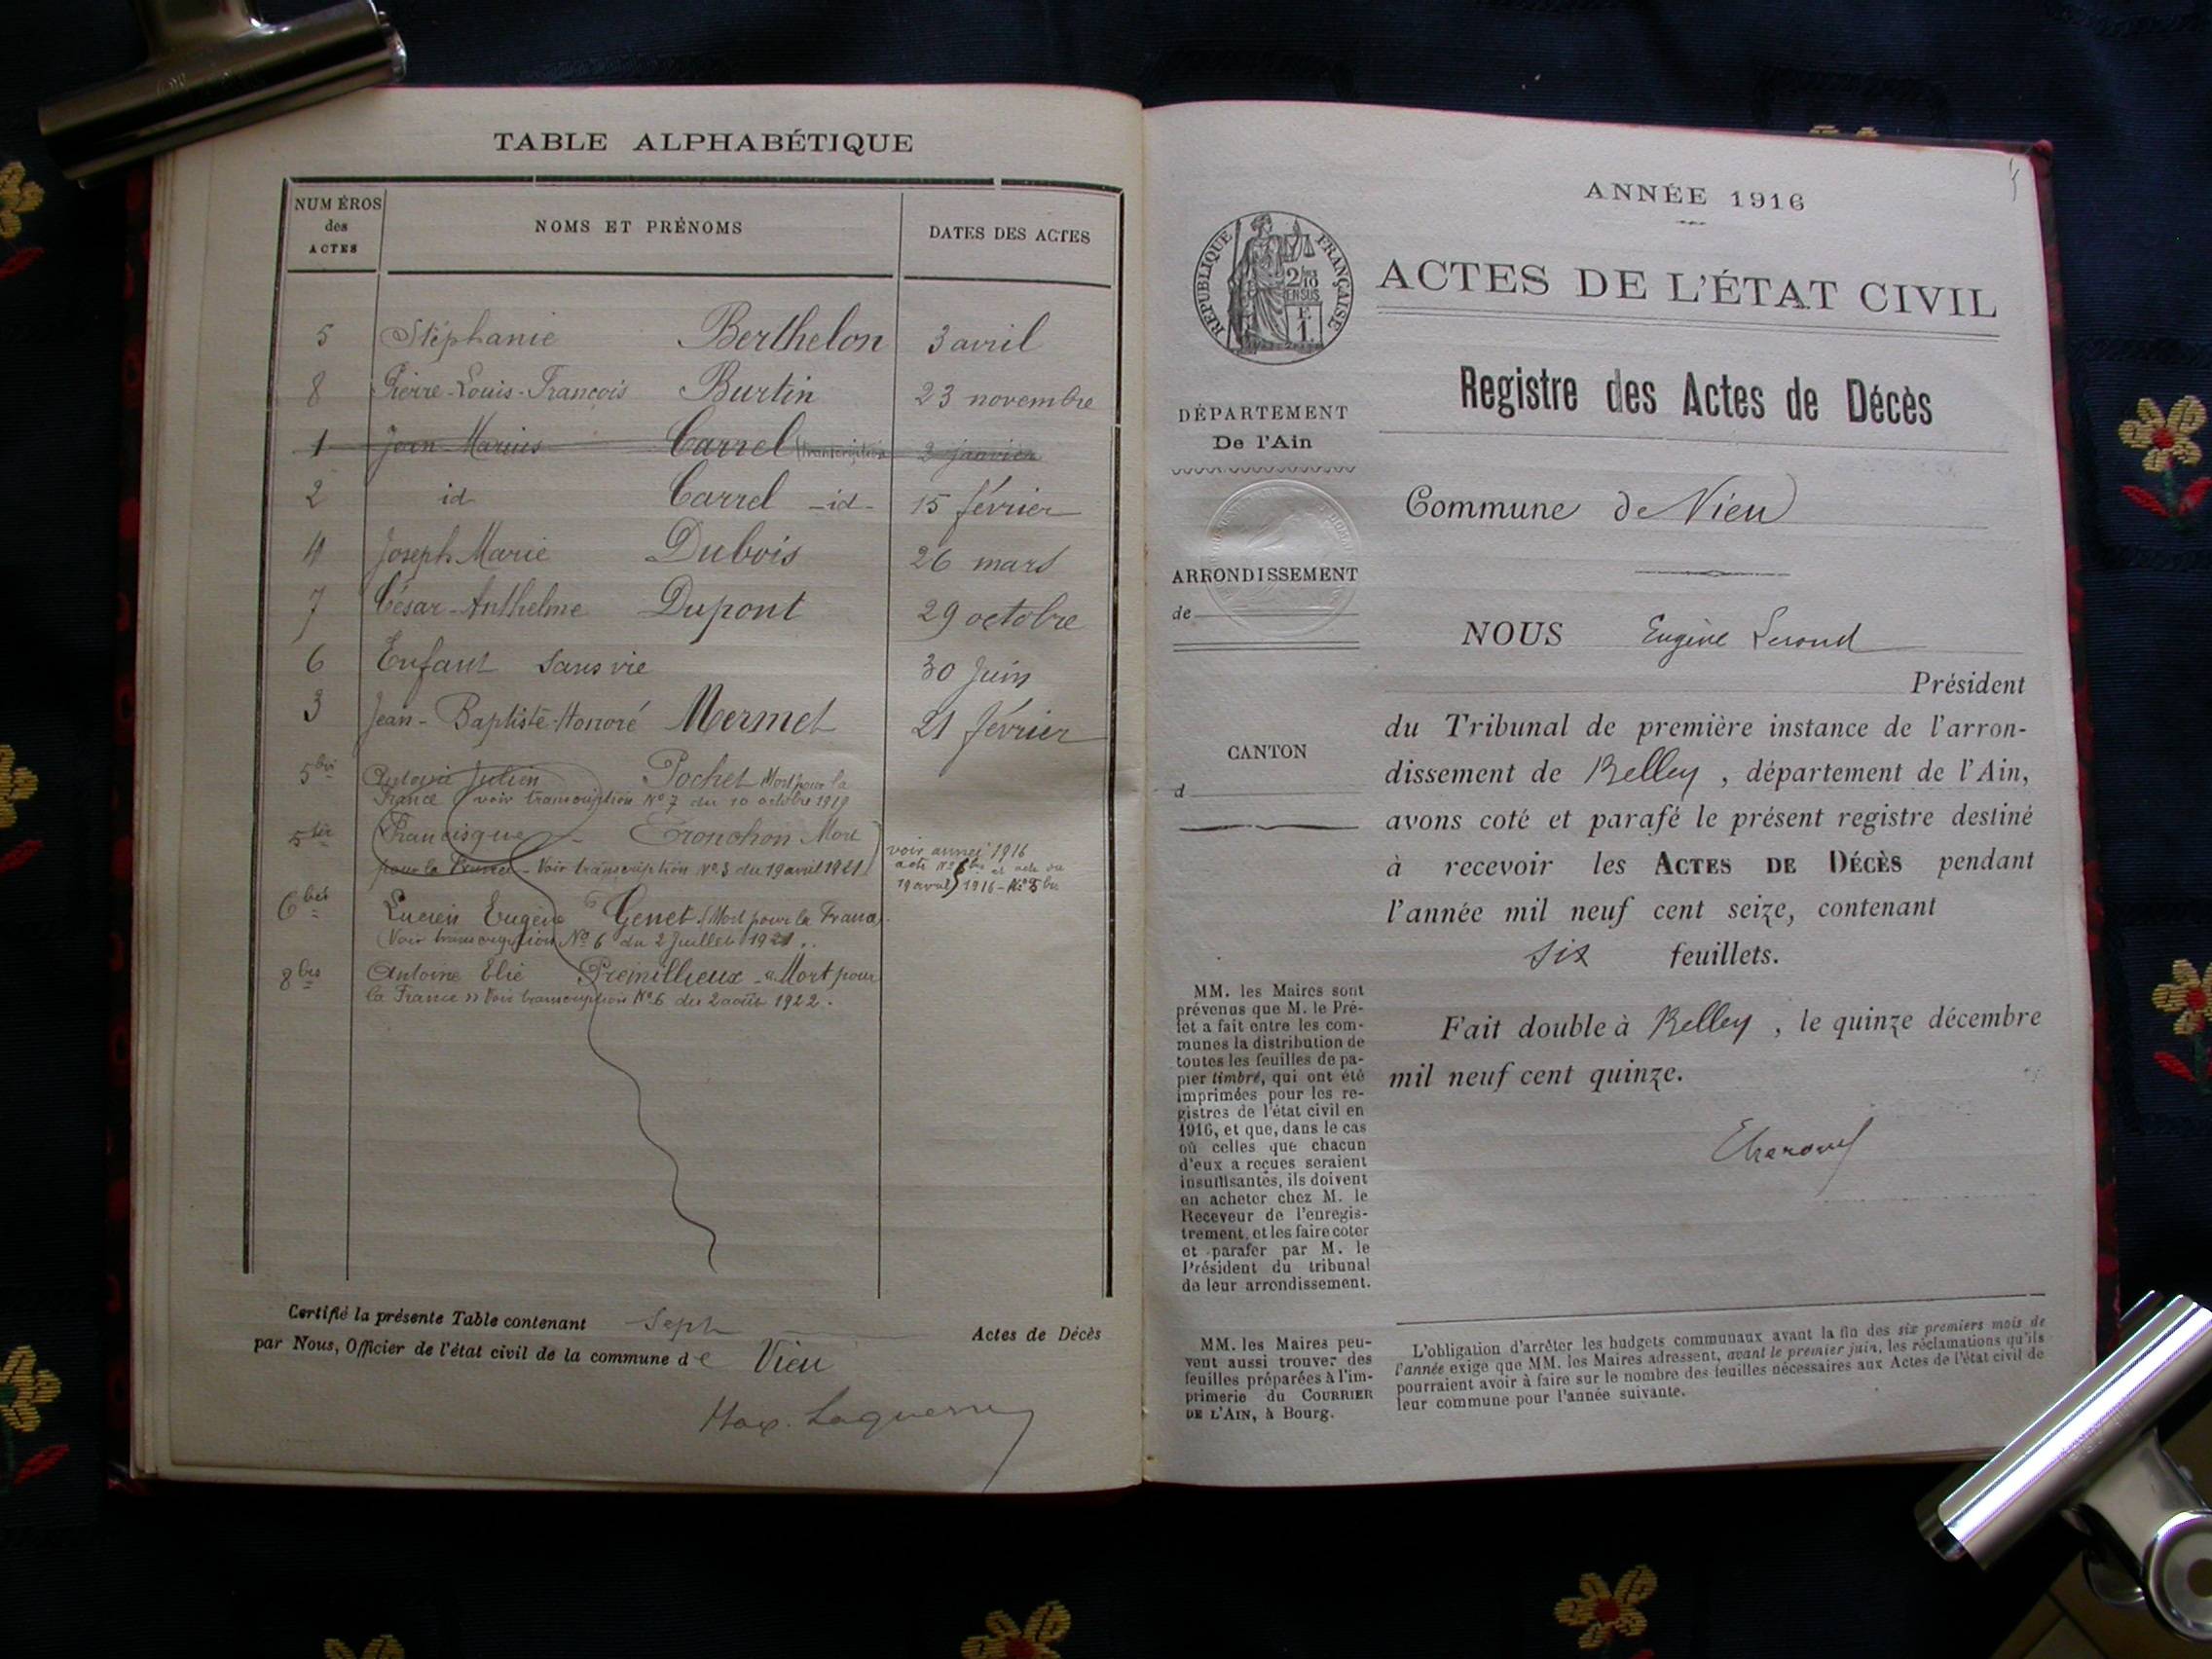 TABLE ALPHABÉTIQUE
NUMÉROS des ACTES NOMS ET PRÉNOMS DATES DES ACTES
5 Stéphanie Berthelon 3 avril
8 Pierre-Louis-François Burtin 23 novembre
1 Jean-Marius Carrel (transcription 2 janvier
2 id Carrel -id- 15 février
4 Joseph Marie Dubois 26 mars
7 César-Anthelme Dupont 29 octobre
6 Enfant sans vie 30 Juin
3 Jean-Baptiste-Honoré Mermet 21 février
5 bis Antoine Julien Pochet Mort pour la
France (voir transcription No 7 du 10 octobre 1919
5 ter Francisque Tronchon Mort
pour la France - Voir transcription No. 3 du 19 avril 1921)
voir année 1916
acte No bis et acte du
19 avril 1916 - No 5 bis
6 bis Lucien Eugène Genet (Mort pour la France)
(Voir transcription No 6 du 2 Juillet 1921..
8 bis Antoine Elie Premillieux "Mort pour
la France" Voir transcription No 6 du 2 août 1922.
Certifié la présente Table contenant sept Actes de Décès
par Nous, Officier de l'état civil de la commune de Vieu
ANNÉE 1916
RÉPUBLIQUE FRANÇAISE
2/10 EN SUS
1F
ACTES DE L'ÉTAT CIVIL
Registre des Actes de Décès
DÉPARTEMENT
De l'Ain
Commune de Vieu
ARRONDISSEMENT
de
NOUS Eugène
Président
du Tribunal de première instance de l'arron-
dissement de Belley, département de l'Ain,
avons coté et parafé le présent registre destiné
à recevoir les ACTES DE DÉCÈS pendant
l'année mil neuf cent seize, contenant
six feuillets.
Fait double à Belley, le quinze décembre
mil neuf cent quinze.
CANTON
d
MM. les Maires sont
prévenus que M. le Pré-
fet a fait entre les com-
munes la distribution de
toutes les feuilles de pa-
pier timbré, qui ont été
imprimées pour les re-
gistres de l'état civil en
1916, et que, dans le cas
où celles que chacun
d'eux a reçues seraient
insuffisantes, ils doivent
en acheter chez M. le
Receveur de l'enregis-
trement, et les faire coter
et parafer par M. le
Président du tribunal
de leur arrondissement.
MM. les Maires peu-
vent aussi trouver des
feuilles préparées à l'im-
primerie du COURRIER
DE L'AIN, à Bourg.
L'obligation d'arrêter les budgets communaux avant la fin des six premiers mois de
l'année exige que MM. les Maires adressent, avant le premier juin, les réclamations qu'ils
pourraient avoir à faire sur le nombre des feuilles nécessaires aux Actes de l'état civil de
leur commune pour l'année suivante.